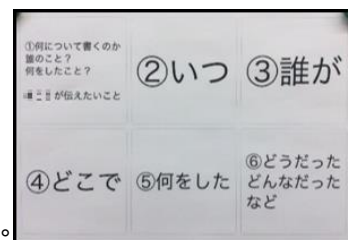 ①何について書くのか
誰のこと?
何をしたこと?
が伝えたいこと
②いつ
③誰が
④どこで
⑤何をした
⑥どうだった
どんなだった
など
。